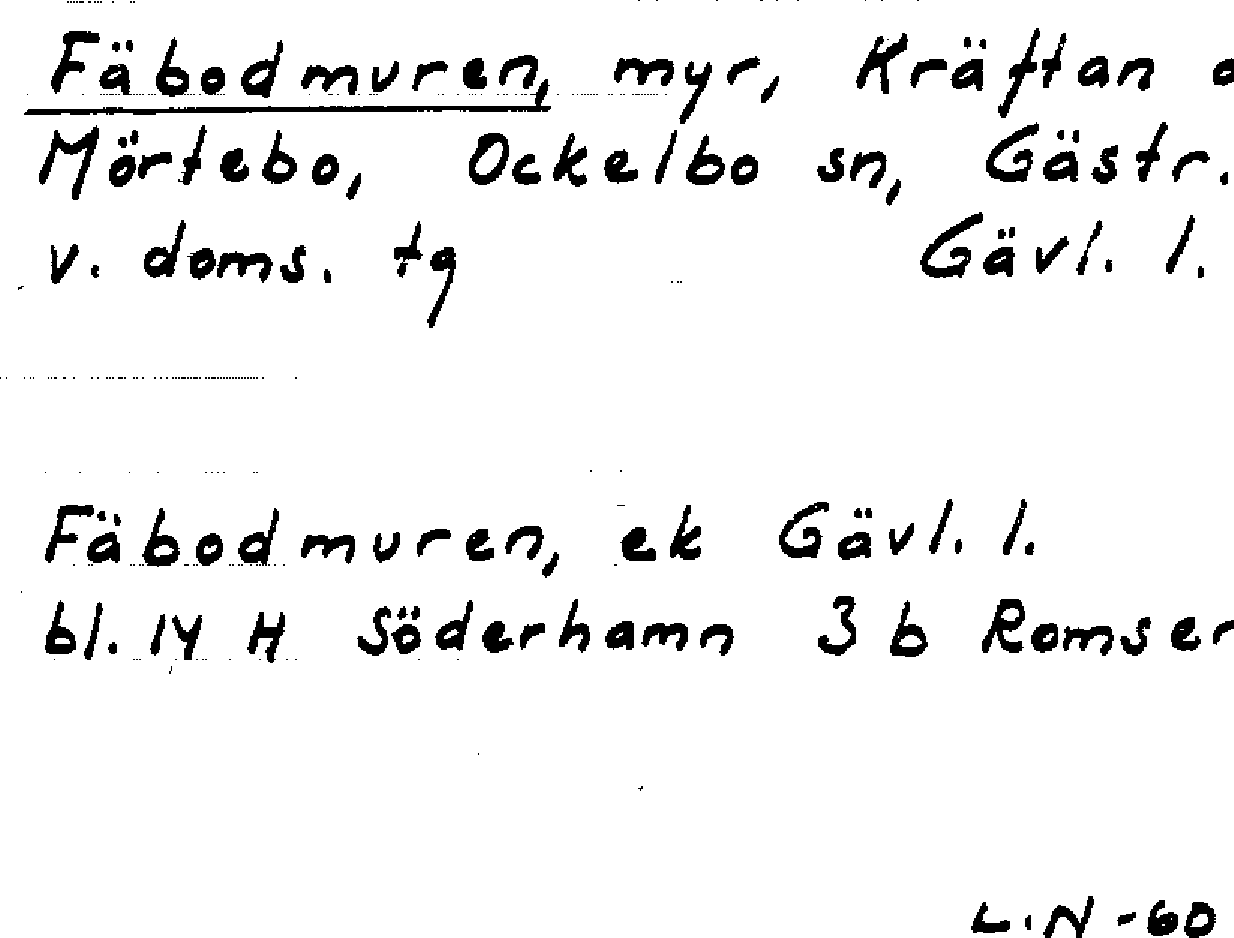 Fäbodmuren, myr, Kräftan o
Mörtebo, Ockelbo sn, Gästr.
v. doms. tg Gävl. l.
Fäbodmuren, ek Gävl. l.
bl. 14 H Söderhamn 3 b Romser
L.N -60